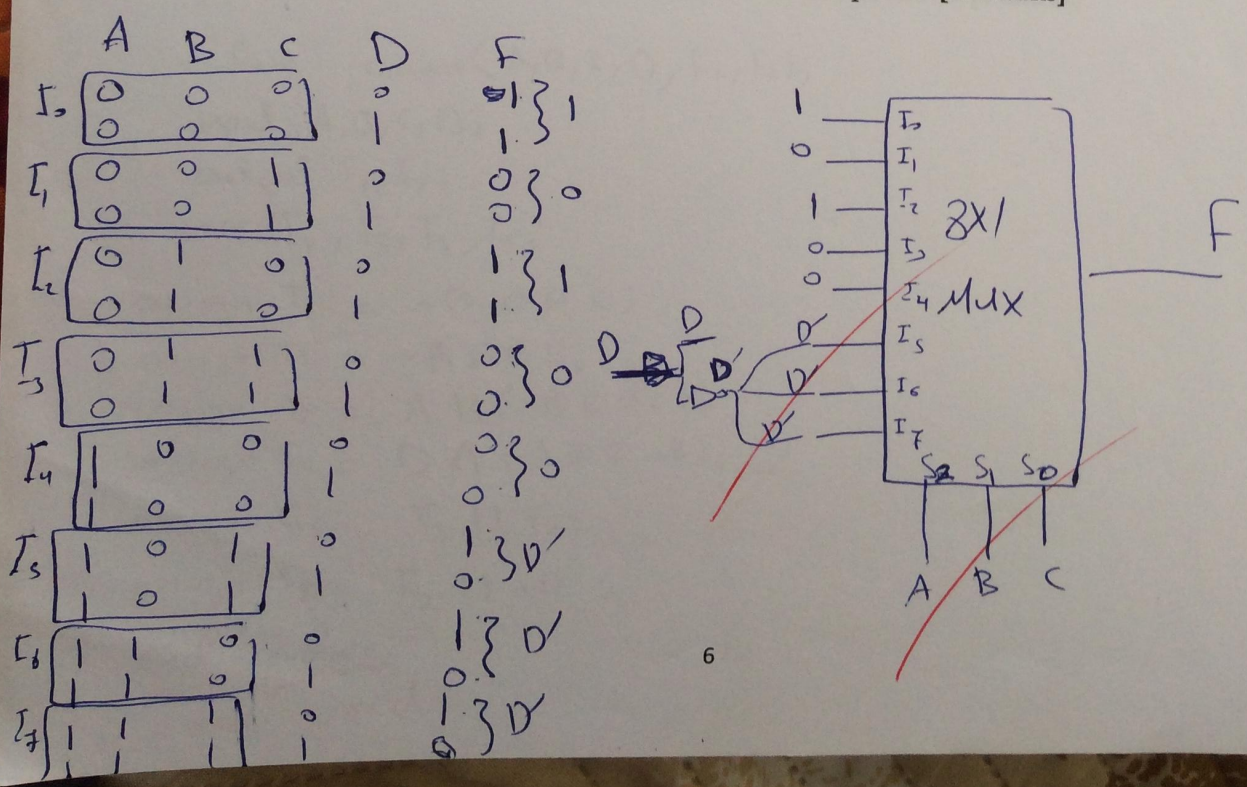 A B C D F
I₀ 0 0 0 0 1 } 1
0 0 0 1 1
I₁ 0 0 1 0 0 } 0
0 0 1 1 0
I₂ 0 1 0 0 1 } 1
0 1 0 1 1
I₃ 0 1 1 0 0 } 0
0 1 1 1 0
I₄ 1 0 0 0 0 } 0
1 0 0 1 0
I₅ 1 0 1 0 1 } D'
1 0 1 1 0
I₆ 1 1 0 0 1 } D'
1 1 0 1 0
I₇ 1 1 1 0 1 } D'
1 1 1 1 0
1 I₀
0 I₁
1 I₂
0 I₃
0 I₄
D' I₅
D' I₆
D' I₇
8X1
MUX
F
D
D
D'
S₂ S₁ S₀
A B C
6